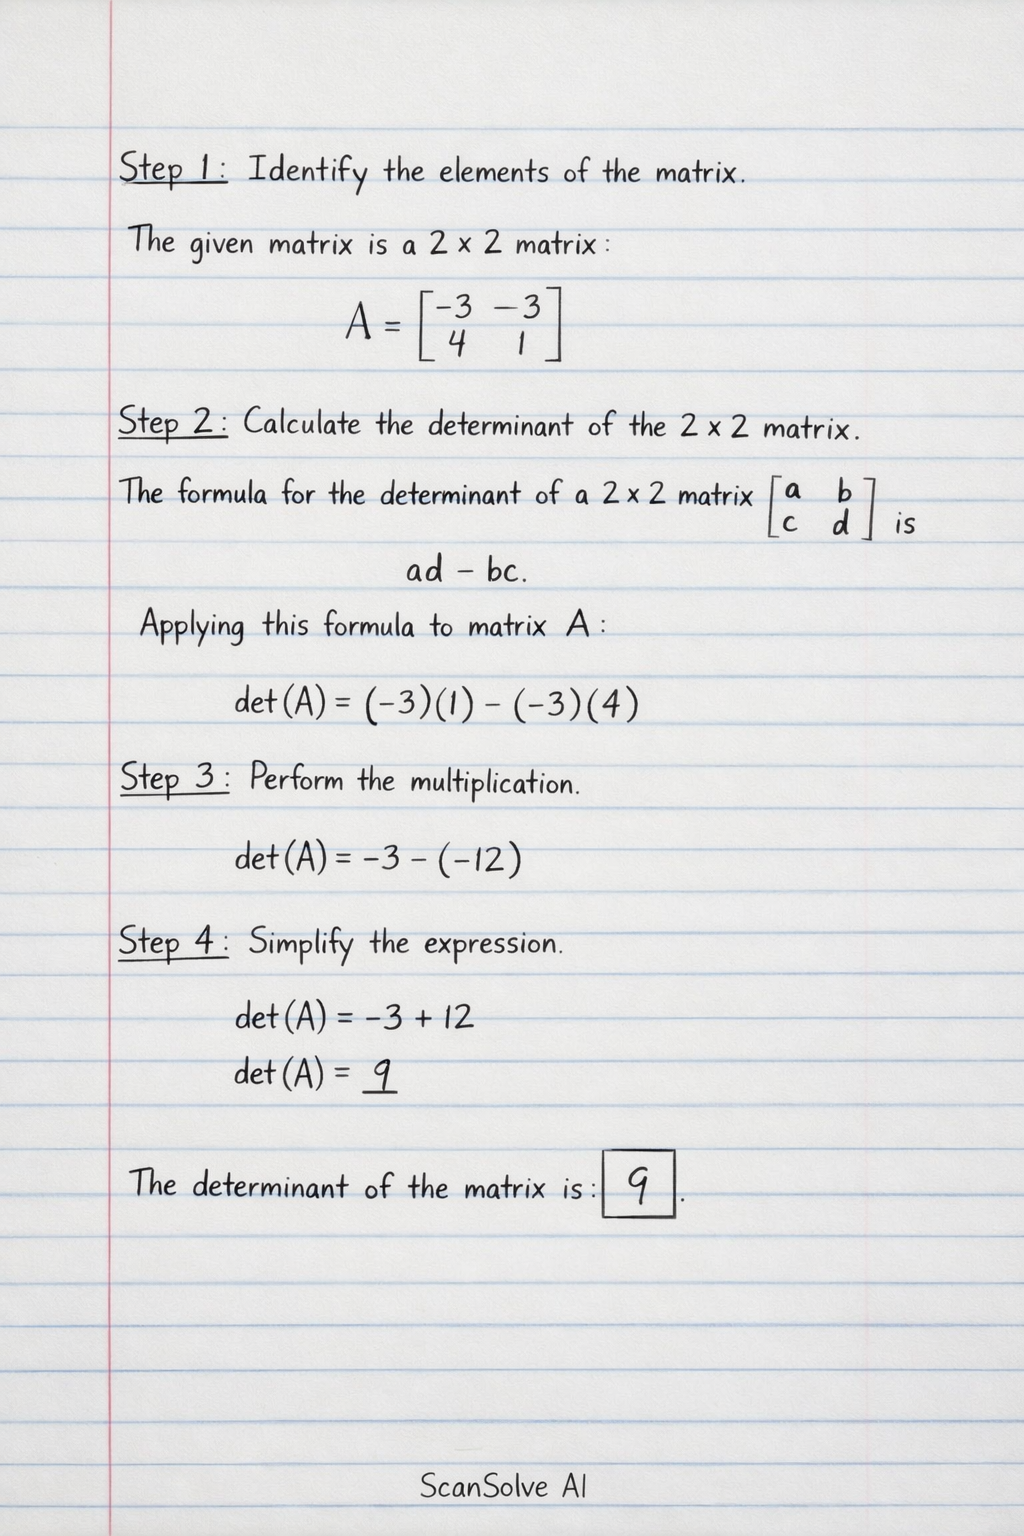 Step 1: Identify the elements of the matrix.
The given matrix is a 2 × 2 matrix:
A = [-3 -3
4 1]
Step 2: Calculate the determinant of the 2 × 2 matrix.
The formula for the determinant of a 2 × 2 matrix [a b
c d] is
ad - bc.
Applying this formula to matrix A:
det(A) = (-3)(1) - (-3)(4)
Step 3: Perform the multiplication.
det(A) = -3 - (-12)
Step 4: Simplify the expression.
det(A) = -3 + 12
det(A) = 9
The determinant of the matrix is: 9.
ScanSolve AI